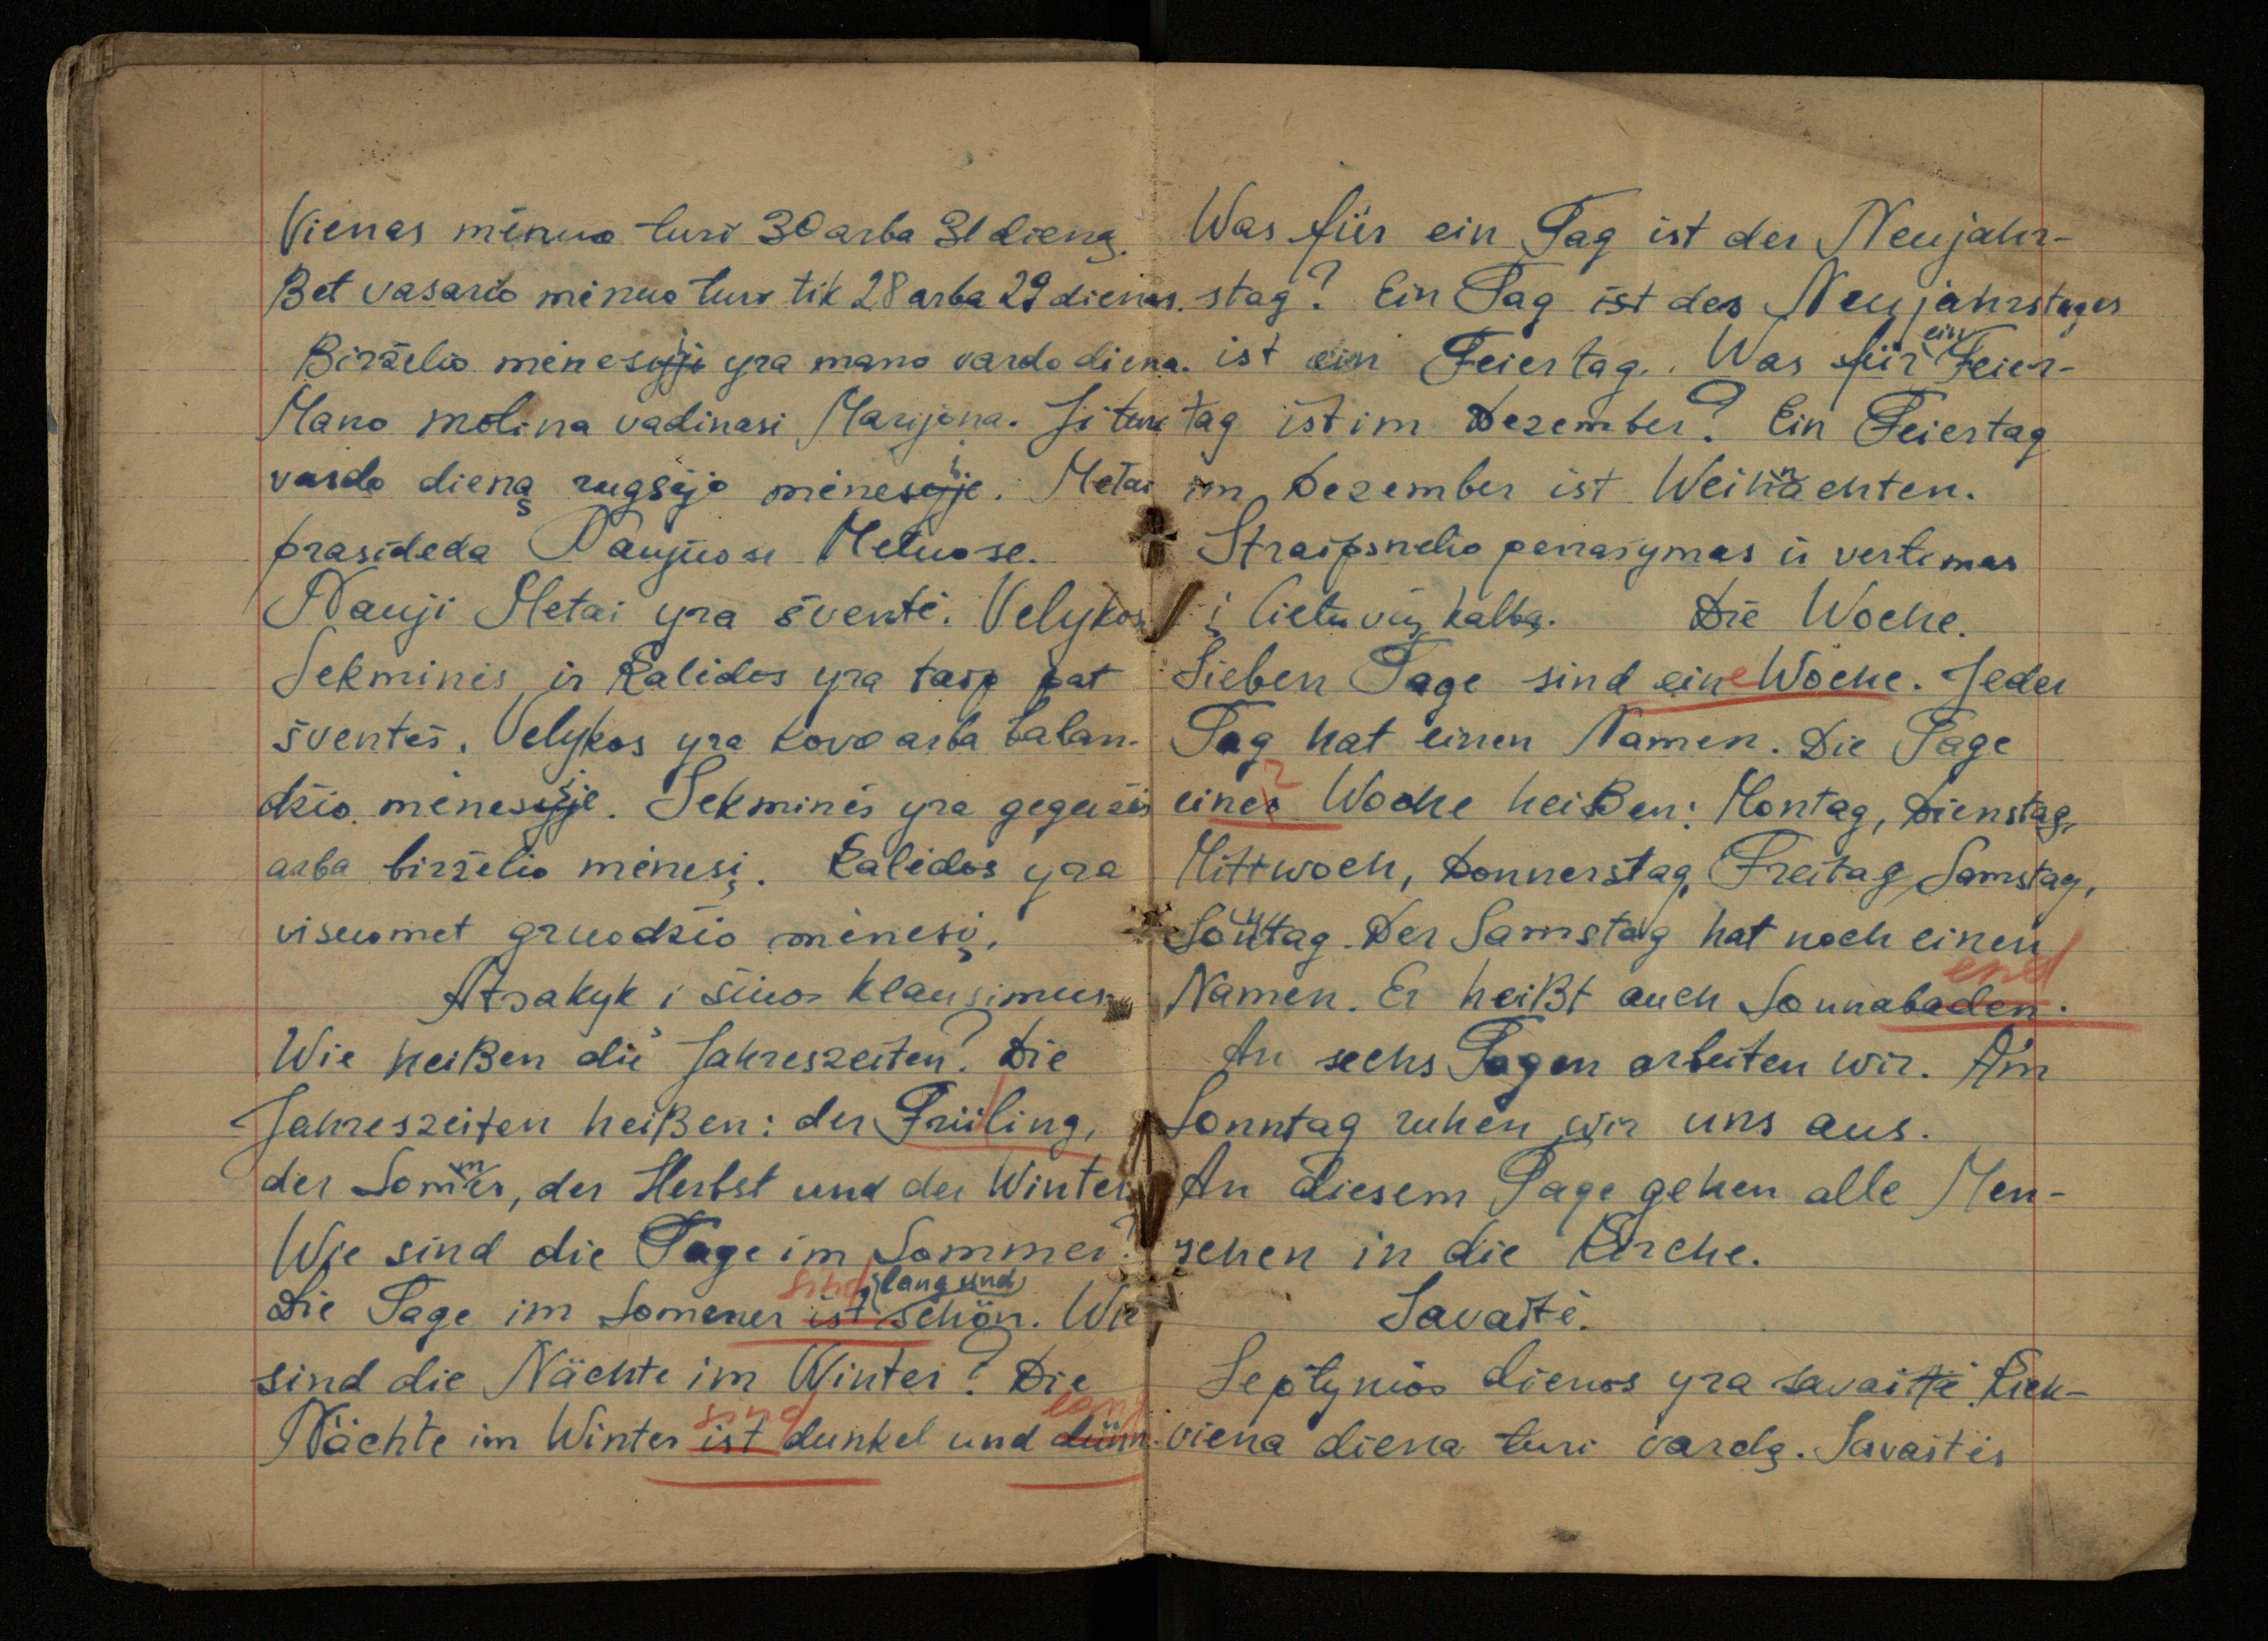 Vienas mėnuo turi 30 arba 31 dieną.
Bet vasario mėnuo turi tik 28 arba 29 dienas.
Birželio mėnesyje yra mano vardo diena.
Mano motina vadinasi Marijona. Ji turi
vardo dieną rugsėjo mėnesyje. Metai
prasideda Naujuose Metuose.
Nauji Metai yra šventė. Velykos
Sekminės ir Kalėdos yra taip pat
šventės. Velykos yra kovo arba balan-
džio mėnesyje. Sekminės yra gegužės
arba birželio mėnesį. Kalėdos yra
visuomet gruodžio mėnesį.
Atsakyk į šiuos klausimus.
Wie heißen die Jahreszeiten? Die
Jahreszeiten heißen: der Früling,
der Sommer, der Herbst und der Winter
Wie sind die Tage im Sommer?
sind lang und
Die Tage im Sommer ist schön. Wie
sind die Nächte im Winter? Die
sind lang
Nächte im Winter ist dunkel und dünn.
Was für ein Tag ist der Neujahr-
stag? Ein Tag ist des Neujahrstages
ein
ist ein Feiertag. Was für Feier-
tag ist im Dezember? Ein Feiertag
im Dezember ist Weihnachten.
Straipsnelio perrašymas ir vertimas
į lietuvių kalbą. Die Woche.
Sieben Tage sind eine Woche. Jeder
Tag hat einen Namen. Die Tage
einer Woche heißen: Montag, Dienstag,
Mittwoch, Donnerstag, Freitag, Samstag,
Sonntag. Der Samstag hat noch einen
end
Namen. Er heißt auch Sonnabaden.
An sechs Tagen arbeiten wir. Am
Sonntag ruhen wir uns aus.
An diesem Tage gehen alle Men-
schen in die Kirche.
Savaitė.
Septynios dienos yra savaitė. Kiek-
viena diena turi vardą. Savaitės